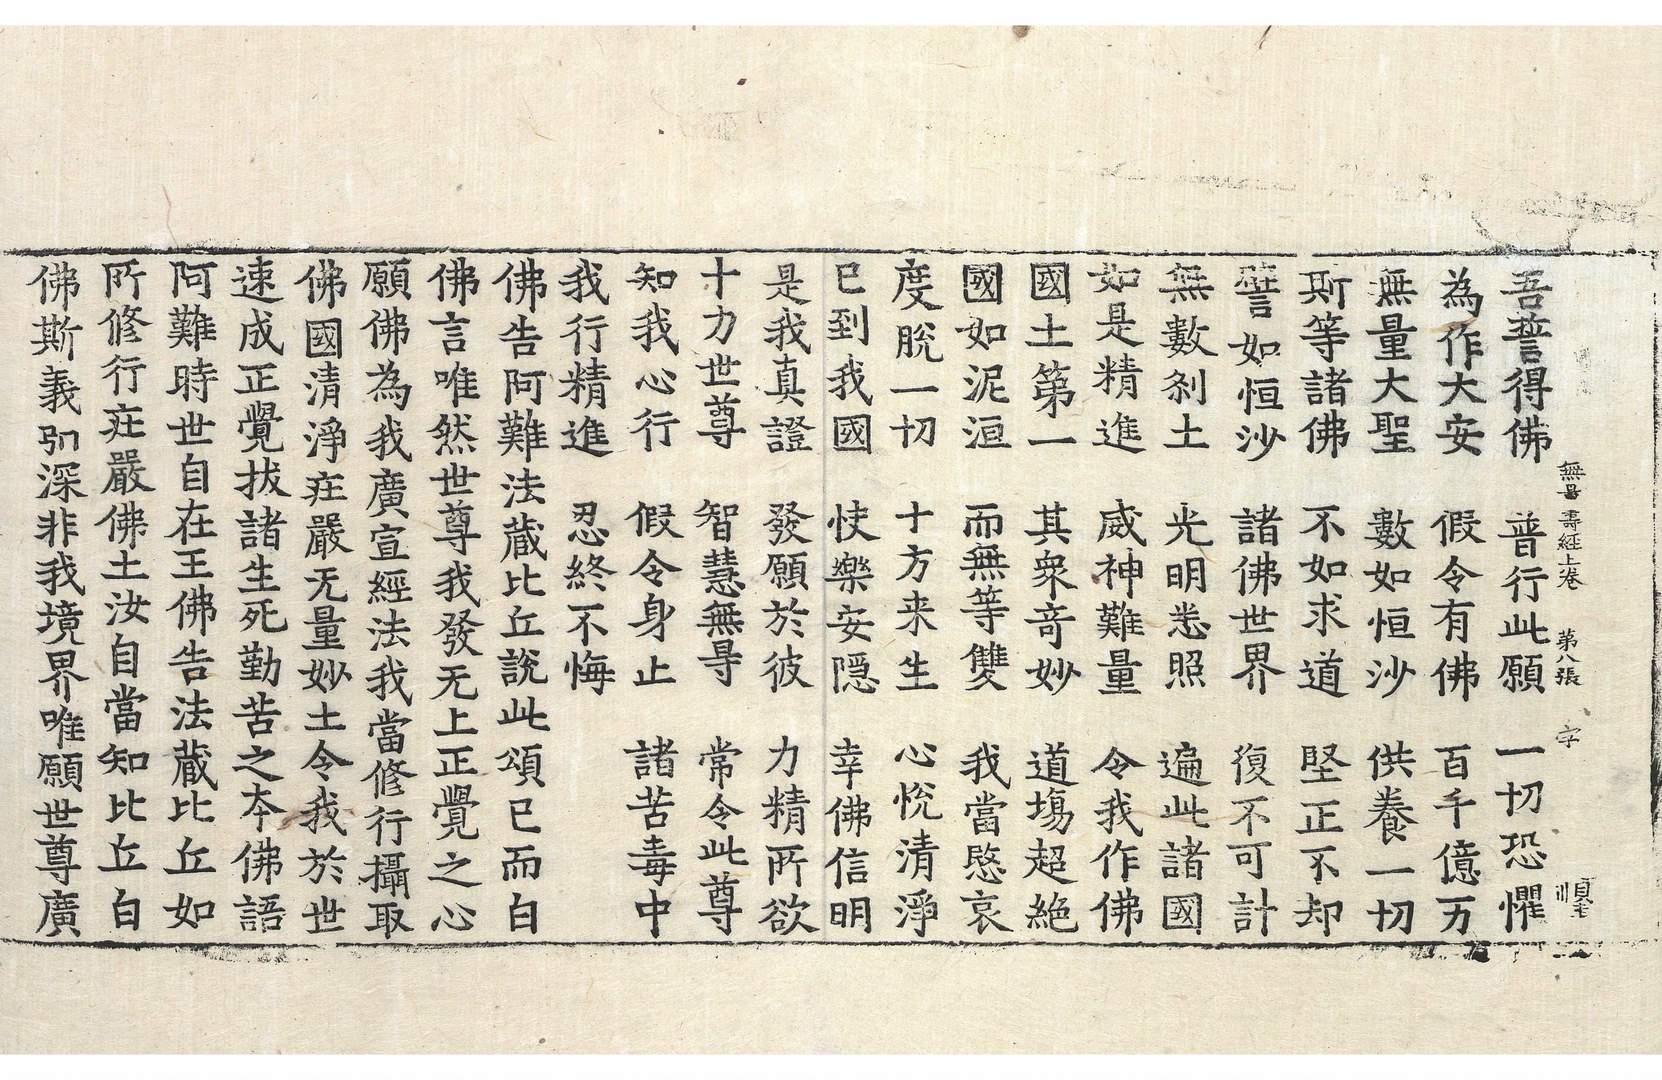 無量壽經上卷 第八張 字
吾誓得佛 普行此願 一切恐懼
為作大安 假令有佛 百千億万
無量大聖 數如恒沙 供養一切
斯等諸佛 不如求道 堅正不却
譬如恒沙 諸佛世界 復不可計
無數剎土 光明悉照 遍此諸國
如是精進 威神難量 令我作佛
國土第一 其衆奇妙 道塲超絶
國如泥洹 而無等雙 我當愍哀
度脫一切 十方来生 心悅清淨
已到我國 快樂安隱 幸佛信明
是我真證 發願於彼 力精所欲
十力世尊 智慧無㝵 常令此尊
知我心行 假令身止 諸苦毒中
我行精進 忍終不悔
佛告阿難法藏比丘說此頌已而白
佛言唯然世尊我發无上正覺之心
願佛為我廣宣經法我當修行攝取
佛國清淨莊嚴无量妙土令我於世
速成正覺拔諸生死勤苦之本佛語
阿難時世自在王佛告法藏比丘如
所修行莊嚴佛土汝自當知比丘白
佛斯義弘深非我境界唯願世尊廣